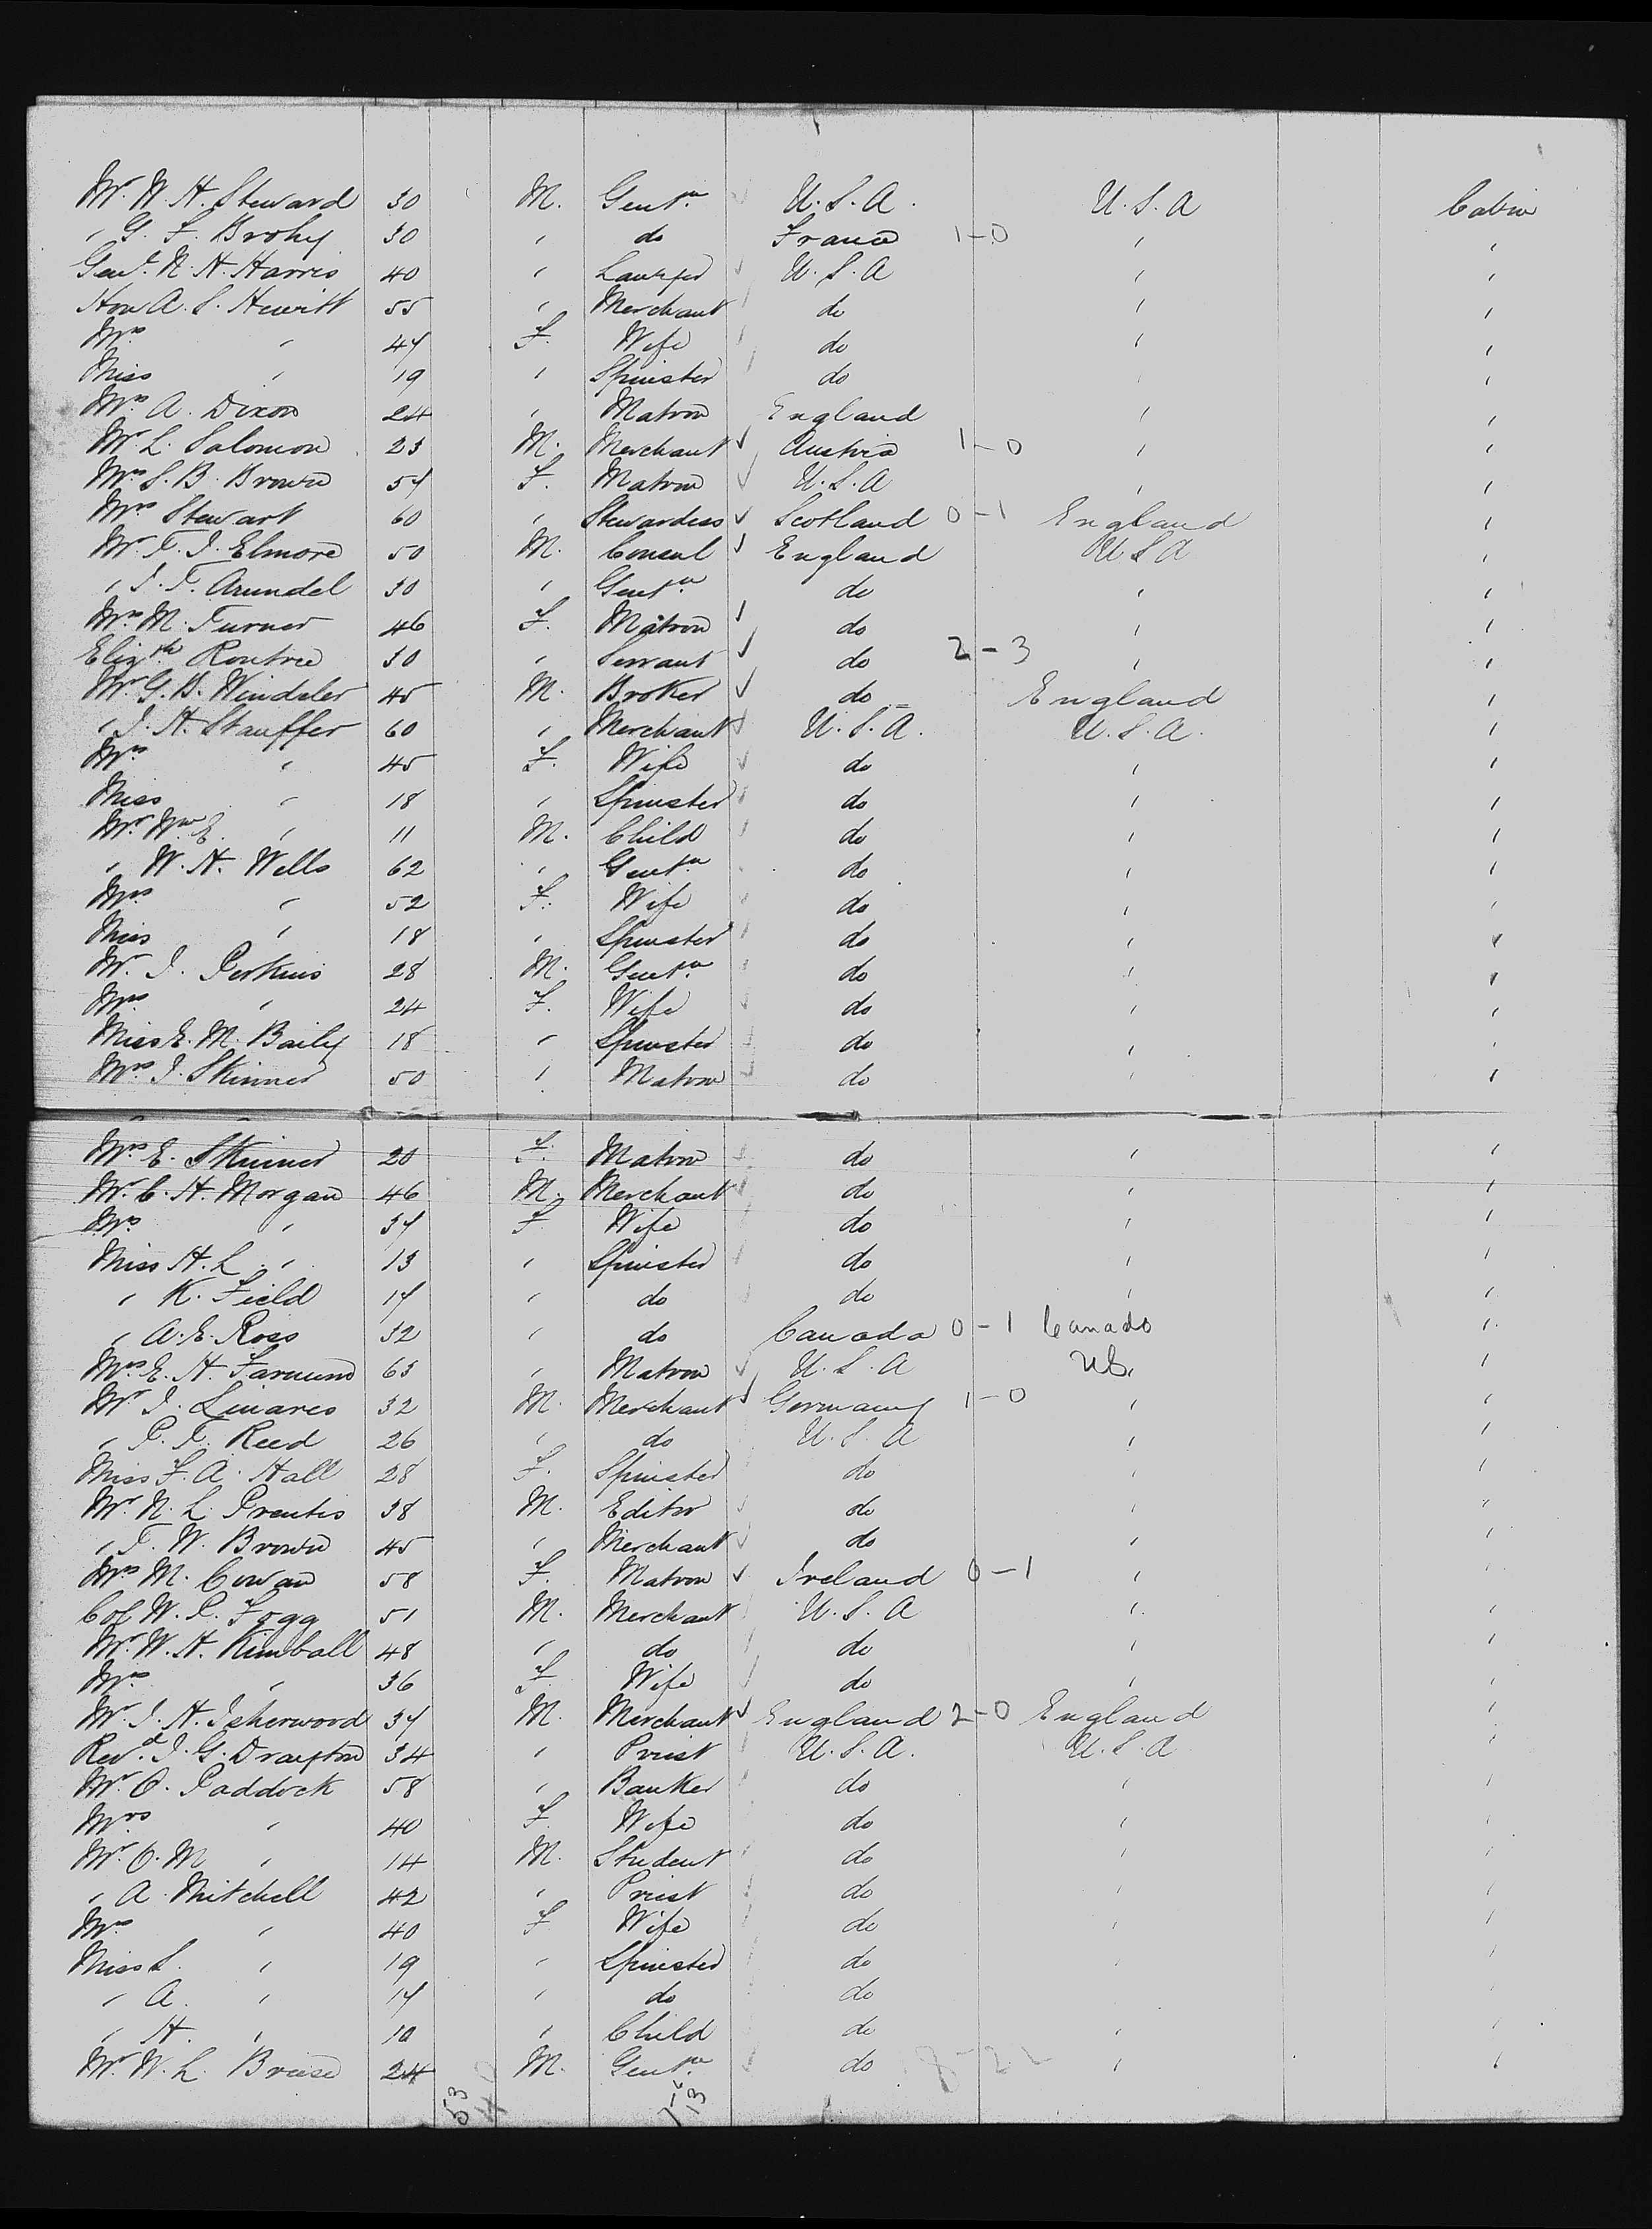 Mr. W. H. Steward 30 M. Gentn. U.S.A. U.S.A Cabin
" G. F. Brohy 30 " do France 1-0 " "
Genl. N. H. Harris 40 " Lawyer U.S.A " "
Hon A. S. Hewitt 55 " Merchant do " "
Mrs " 47 F. Wife do " "
Miss " 19 " Spinster do "
Mrs. A. Dixon 24 " Matron England " "
Mr. L. Salomon 23 M. Merchant Austria 1-0 " "
Mrs. S. B. Brown 57 F. Matron U.S.A " "
Mrs Stewart 60 " Stewardess Scotland 0-1 England "
Mr. T. J. Elmore 50 M. Consul England U S A "
" J. T. Arundel 30 " Gentn. do " "
Mrs. M. Turner 46 F. Matron do " "
Elizth. Rontree 30 " Servant do 2-3 " "
Mr. G. B. Windeler 45 M. Broker do England "
" J. H. Stauffer 60 " Merchant U.S.A. U.S.A. "
Mrs " 45 F. Wife do " "
Miss " 18 " Spinster do " "
Mr. Wm E. " 11 M. Child do " "
" W. H. Wells 62 " Gentn. do " "
Mrs " 52 F. Wife do " "
Miss " 18 " Spinster do " "
Mr. J. Perkins 28 M. Gentn. do " "
Mrs. " 24 F. Wife do " "
Miss E. M. Baily 18 " Spinster do " "
Mrs. J. Skinner 50 " Matron do " "
Mrs. E. Skinner 20 F. Matron do " "
Mr. C. H. Morgan 46 M. Merchant do " "
Mrs. " 37 F Wife do " "
Miss H. L. " 13 " Spinster do " "
" K. Field 17 " do do " "
" A. E. Ross 32 " do Canada 0-1 Canada "
Mrs. E. H. 63 " Matron U.S.A US. "
Mr J. Linares 32 M. Merchant Germany 1-0 " "
" P. T. Reed 26 " do U.S.A " "
Miss F. A. Hall 28 F. Spinster do " "
Mr. N. L. Prentis 38 M. Editor do " "
" T. W. Brown 45 " Merchant do " "
Mrs M. Cowan 58 F. Matron Ireland 0-1 " "
Col W. P. Fogg 51 M. Merchant U.S.A " "
Mr. W. H. Kimball 48 " do do " "
Mrs " 36 F. Wife do " "
Mr. J. H. Isherwood 37 M. Merchant England 2-0 England "
Revd. J. G. Drayton 34 " Priest U.S.A. U.S.A "
Mr. O. Paddock 58 " Banker do " "
Mrs. " 40 F. Wife do " "
Mr. O. M " 14 M. Student do " "
" A. Mitchell 42 " Priest do " "
Mrs " 40 F Wife do " "
Miss L. " 19 " Spinster do " "
" A. " 17 " do do "
" H. " 10 " Child do " "
Mr. W. L. Breese 24 M. Gentn. do " "
53 13